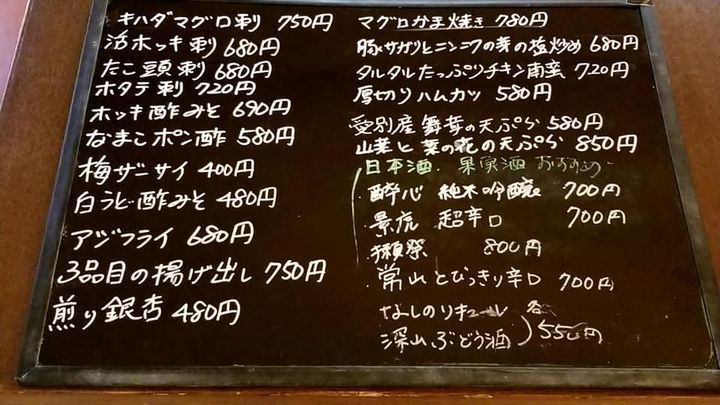 キハダマグロ刺 750円
活ホッキ刺 680円
たこ頭刺 680円
ホタテ刺 720円
ホッキ酢みそ 690円
なまこポン酢 580円
梅ザーサイ 400円
白うど酢みそ 480円
アジフライ 680円
3品目の揚げ出し 750円
煎り銀杏 480円
マグロかま焼き 780円
豚サガリとニンニクの芽の塩炒め 680円
タルタルたっぷりチキン南蛮 720円
厚切りハムカツ 580円
愛別産 舞茸の天ぷら 580円
山菜と菜の花の天ぷら 850円
日本酒・果実酒 おすすめ
酔心 純米吟醸 700円
景虎 超辛口 700円
獺祭 800円
常山 とびっきり辛口 700円
なしのリキュール 各
深山ぶどう酒 550円